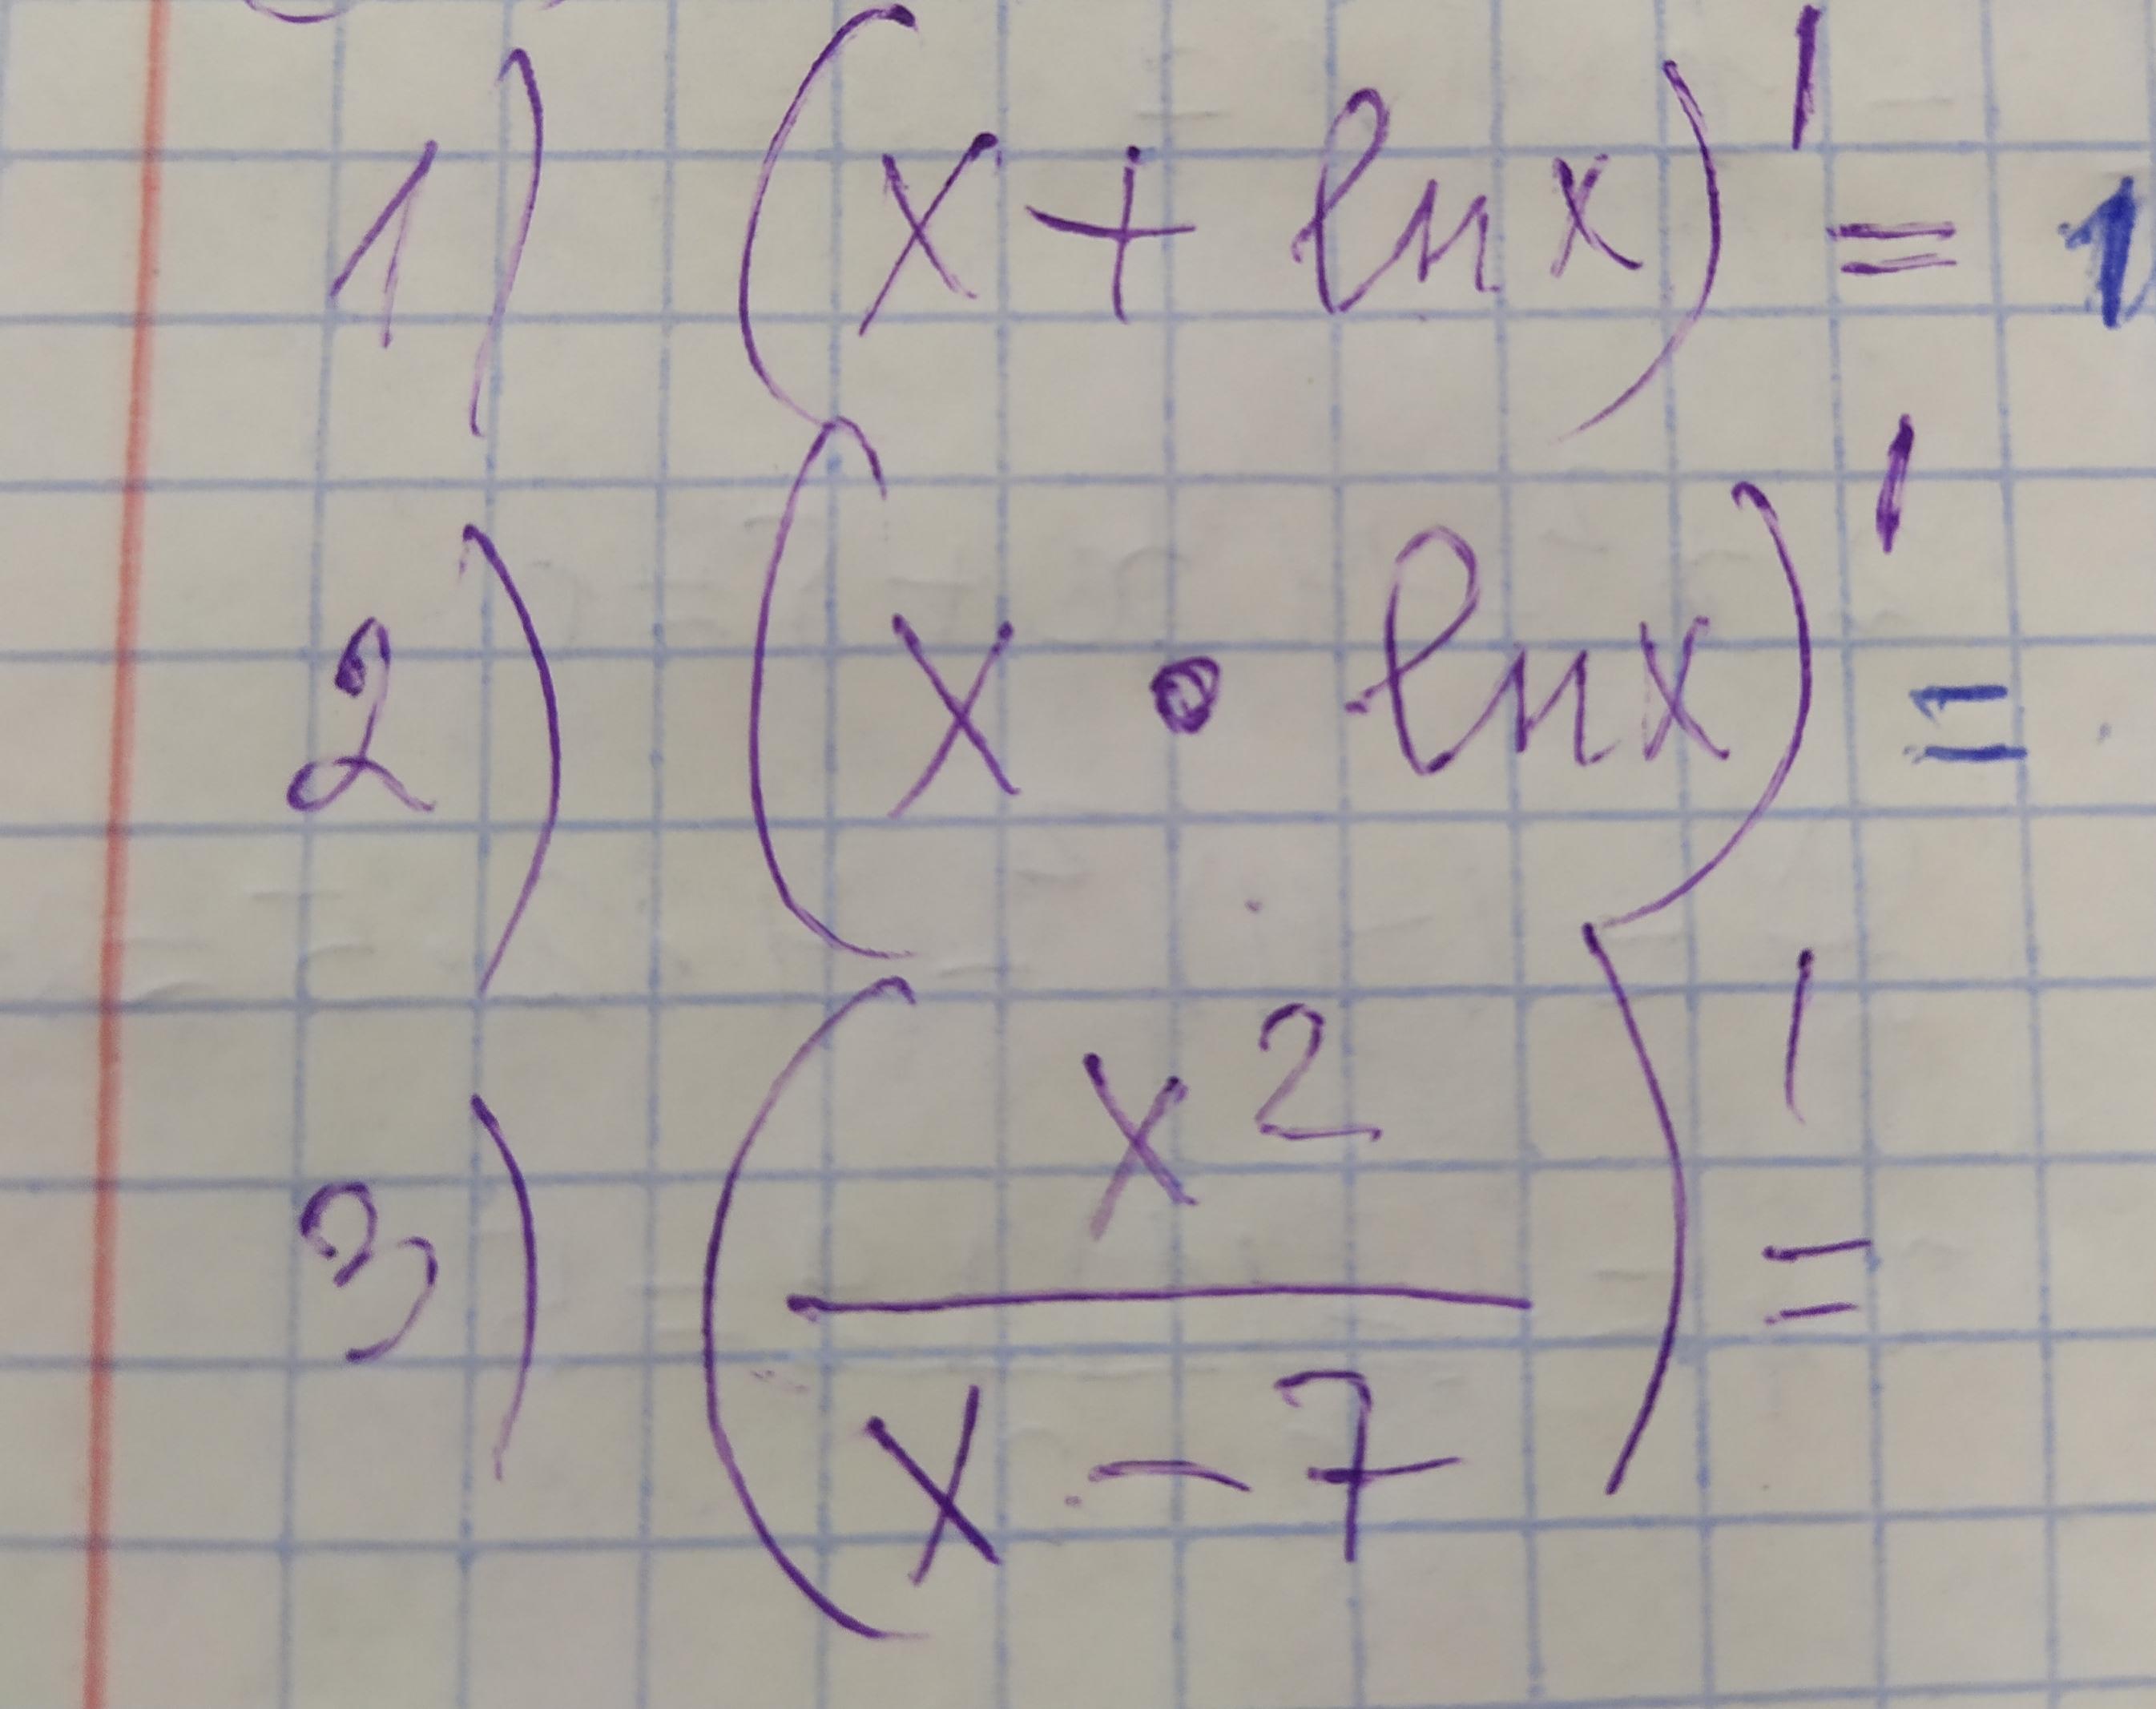 1) (x + ln x)' = 1
2) (x • ln x)' =
3) (x² / x - 7)' =